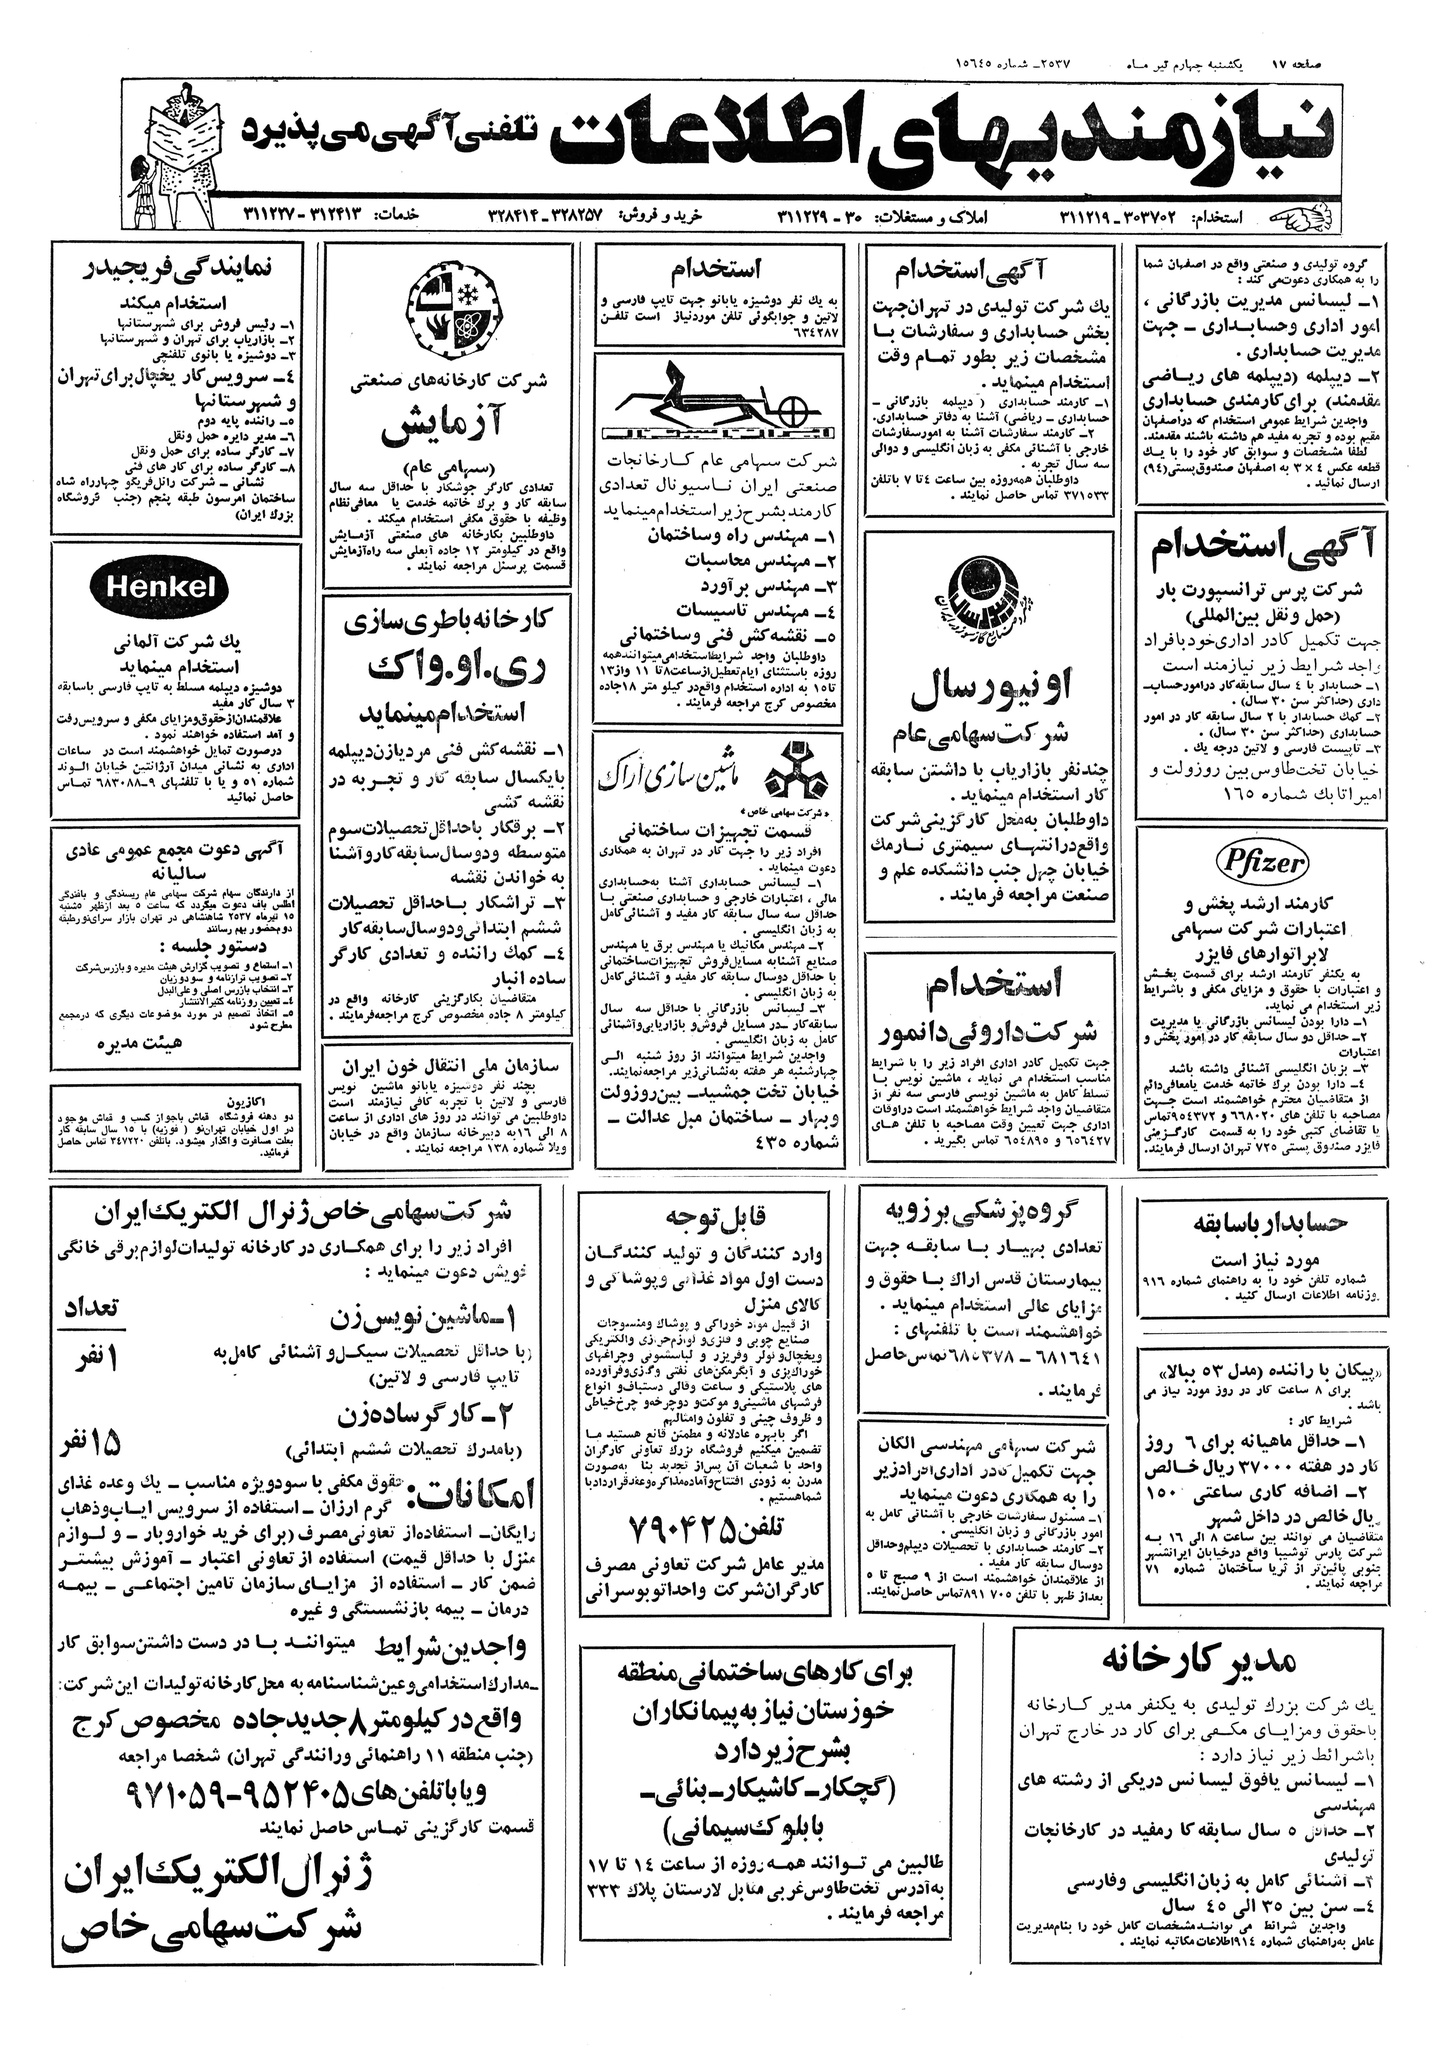 صفحه ۱۷ یکشنبه چهارم تیر ماه ۲۵۳۷ـ شماره ۱۵۶۴۵
نیازمندیهای اطلاعات تلفنی آگهی می‌پذیرد
استخدام: ۳۰۳۷۰۲ ـ ۳۱۱۲۱۹ املاک و مستغلات: ۳۰ - ۳۱۱۲۲۹ خرید و فروش: ۳۲۸۲۵۷ـ ۳۲۸۴۱۴ خدمات: ۳۱۲۴۱۳ـ ۳۱۱۲۲۷
گروه تولیدی و صنعتی واقع در اصفهان شما
را به همکاری دعوت می کند :
۱ـ لیسانس مدیریت بازرگانی ،
امور اداری وحسابداری ـ جهت
مدیریت حسابداری .
۲ـ دیپلمه (دیپلمه های ریاضی
مقدمند) برای کارمندی حسابداری
واجدین شرایط عمومی استخدام که دراصفهان
مقیم بوده و تجربه مفید هم داشته باشند مقدمند.
لطفا مشخصات و سوابق کار خود را با یک
قطعه عکس ۴ × ۳ به اصفهان صندوق‌پستی(۹۴)
ارسال نمائید .
آگهی استخدام
شرکت پرس ترانسپورت بار
(حمل و نقل بین‌المللی)
جهت تکمیل کادر اداری‌خود با افراد
واجد شرایط زیر نیازمند است
۱ـ حسابدار با ۴ سال سابقه‌کار درامورحساب‌ـ
داری (حداکثر سن ۳۰ سال) .
۲ـ کمک حسابدار با ۲ سال سابقه کار در امور
حسابداری (حداکثر سن ۳۰ سال) .
۳ـ تایپست فارسی و لاتین درجه یک .
خیابان تخت‌طاوس بین روزولت و
امیراتابک شماره ۱۶۵
Pfizer
کارمند ارشد پخش و
اعتبارات شرکت سهامی
لابراتوارهای فایزر
به یکنفر کارمند ارشد برای قسمت پخش
و اعتبارات با حقوق و مزایای مکفی و باشرایط
زیر استخدام می نماید.
۱ـ دارا بودن لیسانس بازرگانی یا مدیریت
۲ـ حداقل دو سال سابقه کار در امور پخش و
اعتبارات
۳ـ بزبان انگلیسی آشنائی داشته باشد
۴ـ دارا بودن برک خاتمه خدمت یامعافی‌دائم
از متقاضیان محترم خواهشمند است جهت
مصاحبه با تلفن های ۶۶۸۰۲۰ و ۹۵۴۳۷۲تماس
یا تقاضای کتبی خود را به قسمت کارگزینی
فایزر صندوق پستی ۷۲۵ تهران ارسال فرمایند.
آگهی استخدام
یک شرکت تولیدی در تهران جهت
بخش حسابداری و سفارشات با
مشخصات زیر بطور تمام وقت
استخدام مینماید .
۱ـ کارمند حسابداری ( دیپلمه بازرگانی ـ
حسابداری ـ ریاضی) آشنا به دفاتر حسابداری.
۲ـ کارمند سفارشات آشنا به امورسفارشات
خارجی با آشنائی مکفی به زبان انگلیسی و دوالی
سه سال تجربه .
داوطلبان همه‌روزه بین ساعت ۴ تا ۷ باتلفن
۳۷۱۵۳۳ تماس حاصل نمایند .
اونیورسال
شرکت سهامی عام
چندنفر بازاریاب با داشتن سابقه
کار استخدام مینماید .
داوطلبان به‌محل کارگزینی شرکت
واقع‌درانتهای سیمتری نارمک
خیابان چهل جنب دانشکده علم و
صنعت مراجعه فرمایند .
استخدام
شرکت داروئی دانمور
جهت تکمیل کادر اداری افراد زیر را با شرایط
مناسب استخدام می نماید ، ماشین نویس با
تسلط کامل به ماشین نویسی فارسی سه نفر از
متقاضیان واجد شرایط خواهشمند است دراوقات
اداری جهت تعیین وقت مصاحبه با تلفن های
۶۵۶۴۲۷ و ۶۵۴۸۹۵ تماس بگیرید .
استخدام
به یک نفر دوشیزه یابانو جهت تایپ فارسی و
لاتین و جوابگوئی تلفن موردنیاز است تلفن
۶۳۴۲۸۷
ایران ناسیونال
شرکت سهامی عام کارخانجات
صنعتی ایران ناسیونال تعدادی
کارمند بشرح زیر استخدام مینماید
۱ـ مهندس راه وساختمان
۲ـ مهندس محاسبات
۳ـ مهندس برآورد
۴ـ مهندس تاسیسات
۵ـ نقشه‌کش فنی وساختمانی
داوطلبان واجد شرایط‌استخدامی‌میتوانندهمه
روزه باستثنای ایام‌تعطیل‌از‌ساعت‌۸ تا ۱۱ و از۱۳
تا۱۵ به اداره استخدام واقع‌در کیلو متر ۱۸جاده
مخصوص کرج مراجعه فرمایند .
ماشین سازی اراک
«شرکت سهامی خاص»
قسمت تجهیزات ساختمانی
افراد زیر را جهت کار در تهران به همکاری
دعوت مینماید .
۱ـ لیسانس حسابداری آشنا به‌حسابداری
مالی ، اعتبارات خارجی و حسابداری صنعتی با
حداقل سه سال سابقه کار مفید و آشنائی‌کامل
به زبان انگلیسی .
۲ـ مهندس مکانیک یا مهندس برق یا مهندس
صنایع آشنابه مسایل‌فروش تجهیزات‌ساختمانی
با حداقل دوسال سابقه کار مفید و آشنائی‌کامل
به زبان انگلیسی .
۳ـ لیسانس بازرگانی با حداقل سه سال
سابقه‌کار ـ در مسایل فروش و بازاریابی‌وآشنائی
کامل به زبان انگلیسی .
واجدین شرایط میتوانند از روز شنبه الی
چهارشنبه هر هفته به‌نشانی‌زیر مراجعه‌نمایند.
خیابان تخت جمشید ـ بین روزولت
و بهار ـ ساختمان مبل عدالت ـ
شماره ۴۳۵
شرکت کارخانه‌های صنعتی
آزمایش
(سهامی عام)
تعدادی کارگر جوشکار با حداقل سه سال
سابقه کار و برک خاتمه خدمت یا معافی‌نظام
وظیفه با حقوق مکفی استخدام میکند .
داوطلبین بکارخانه های صنعتی آزمایش
واقع در کیلومتر ۱۲ جاده آبعلی سه راه‌آزمایش
قسمت پرسنل مراجعه نمایند .
کارخانه باطری سازی
ری.او.واک
استخدام مینماید
۱ـ نقشه‌کش فنی مردیازن‌دیپلمه
بایکسال سابقه کار و تجربه در
نقشه کشی
۲ـ برقکار با‌حداقل‌تحصیلات‌سوم
متوسطه ودوسال سابقه‌کاروآشنا
به خواندن نقشه
۳ـ تراشکار باحداقل تحصیلات
ششم ابتدائی‌ودوسال‌سابقه‌کار
۴ـ کمک راننده و تعدادی کارگر
ساده انبار
متقاضیان بکارگزینی کارخانه واقع در
کیلومتر ۸ جاده مخصوص کرج مراجعه‌فرمایند .
سازمان ملی انتقال خون ایران
بچند نفر دوشیزه یابانو ماشین نویس
فارسی و لاتین با تجربه کافی نیازمند است
داوطلبین می توانند در روز های اداری از ساعت
۸ الی ۱۶به دبیرخانه سازمان واقع در خیابان
ویلا شماره ۱۳۸ مراجعه نمایند .
نمایندگی فریجیدر
استخدام میکند
۱ـ رئیس فروش برای شهرستانها
۲ـ بازاریاب برای تهران و شهرستانها
۳ـ دوشیزه یا بانوی تلفنچی
۴ـ سرویس‌کار یخچال‌برای‌تهران
و شهرستانها
۵ـ راننده پایه دوم
۶ـ مدیر دایره حمل ونقل
۷ـ کارگر ساده برای حمل ونقل
۸ـ کارگر ساده برای کار های فنی
نشانی ـ شرکت رانل‌فریگو چهارراه شاه
ساختمان امرسون طبقه پنجم (جنب فروشگاه
بزرک ایران)
Henkel
یک شرکت آلمانی
استخدام مینماید
دوشیزه دیپلمه مسلط به تایپ فارسی باسابقه
۳ سال کار مفید
علاقمندان‌از‌حقوق‌ومزایای مکفی و سرویس‌رفت
و آمد استفاده خواهند نمود .
درصورت تمایل خواهشمند است در ساعات
اداری به نشانی میدان آرژانتین خیابان الوند
شماره ۵۱ و یا با تلفنهای ۹ـ۶۸۳۰۸۸ تماس
حاصل نمائید
آگهی دعوت مجمع عمومی عادی
سالیانه
از دارندگان سهام شرکت سهامی عام ریسندگی و بافندگی
اطلس باف دعوت میگردد که ساعت ۵ بعد ازظهر ۵شنبه
۱۵ تیرماه ۲۵۳۷ شاهنشاهی در تهران بازار سرای‌نورطبقه
دوم‌حضور بهم رسانند
دستور جلسه :
۱ـ استماع و تصویب گزارش هیئت مدیره و بازرس‌شرکت
۲ـ تصویب ترازنامه و سود‌وزیان
۳ـ انتخاب بازرس اصلی و علی‌البدل
۴ـ تعیین روزنامه کثیرالانتشار
۵ـ اتخاذ تصمیم در مورد موضوعات دیگری که درمجمع
مطرح شود
هیئت مدیره
اکازیون
دو دهنه فروشگاه قماش باجواز کسب و قماش موجود
در اول خیابان تهران‌نو ( فوزیه) با ۱۵ سال سابقه کار
بعلت مسافرت واگذار میشود. باتلفن ۳۴۷۲۲۰ تماس حاصل
فرمائید.
حسابدار باسابقه
مورد نیاز است
شماره تلفن خود را به راهنمای شماره ۹۱۶
روزنامه اطلاعات ارسال کنید .
«پیکان با راننده (مدل ۵۳ ببالا»
برای ۸ ساعت کار در روز مورد نیاز می
باشد .
شرایط کار :
۱ـ حداقل ماهیانه برای ۶ روز
کار در هفته ۳۷۰۰۰ ریال خالص
۲ـ اضافه کاری ساعتی ۱۵۰
ریال خالص در داخل شهر
متقاضیان می توانند بین ساعت ۸ الی ۱۶ به
شرکت پارس توشیبا واقع درخیابان ایرانشهر
جنوبی پائین‌تر از ثریا ساختمان شماره ۷۱
مراجعه نمایند .
گروه پزشکی برزویه
تعدادی بهیار با سابقه جهت
بیمارستان قدس اراک با حقوق و
مزایای عالی استخدام مینماید .
خواهشمند است با تلفنهای :
۶۸۱۶۴۱ ـ تماس حاصل
فرمایند .
شرکت سهامی مهندسی الکان
جهت تکمیل کادر اداری‌افرادزیر
را به همکاری دعوت مینماید
۱ـ مسئول سفارشات خارجی با آشنائی کامل به
امور بازرگانی و زبان انگلیسی .
۲ـ کارمند حسابداری با تحصیلات دیپلم‌وحداقل
دوسال سابقه کار مفید .
از علاقمندان خواهشمند است از ۹ صبح تا ۵
بعداز ظهر با تلفن ۸۹۱۷۰۵تماس‌حاصل‌نمایند.
قابل توجه
وارد کنندگان و تولید کنندگان
دست اول مواد غذائی وپوشاکی و
کالای منزل
از قبیل مواد خوراکی و پوشاک ومنسوجات
صنایع چوبی و فلزی و لوازم‌حرزی والکتریکی
ویخچال‌و کولر وفریزر و لباسشوئی وچراغهای
خوراک‌پزی و آبگرمکن‌های نفتی وگازی‌وفرآورده
های پلاستیکی و ساعت وقالی دستباف‌و انواع
فرشهای ماشینی و موکت‌و دوچرخه‌و چرخ‌خیاطی
و ظروف چینی و تفلون وامثالهم
اگر بابهره عادلانه و مطمئن قانع هستید ما
تضمین میکنیم فروشگاه بزرک تعاونی کارگران
واحد با شعبات آن پس‌از تجدید بنا به‌صورت
مدرن به زودی افتتاح‌وآماده‌مذاکره‌وعقدقرارداد‌با
شماهستیم .
تلفن ۷۹۰۴۲۵
مدیر عامل شرکت تعاونی مصرف
کارگران شرکت واحداتوبوسرانی
شرکت سهامی خاص ژنرال الکتریک ایران
افراد زیر را برای همکاری در کارخانه تولیدات لوازم برقی خانگی
خویش دعوت مینماید :
تعداد
۱ـ ماشین نویس زن
(با حداقل تحصیلات سیکل‌و آشنائی کامل به ۱ نفر
تایپ فارسی و لاتین)
۲ـ کارگر ساده زن
(بامدرک تحصیلات ششم ابتدائی) ۱۵ نفر
امکانات: حقوق مکفی با سودویژه مناسب ـ یک وعده غذای
گرم ارزان ـ استفاده از سرویس ایاب‌وذهاب
رایگان‌ـ استفاده‌از تعاونی‌مصرف (برای خرید خواروبار ـ و لوازم
منزل با حداقل قیمت) استفاده از تعاونی اعتبار ـ آموزش بیشتر
ضمن کار ـ استفاده از مزایای سازمان تامین اجتماعی ـ بیمه
درمان ـ بیمه بازنشستگی و غیره
واجدین شرایط میتوانند با در دست داشتن‌سوابق کار
ـ مدارک‌استخدامی‌وعین‌شناسنامه به محل‌کارخانه‌تولیدات این‌شرکت:
واقع در کیلومتر ۸ جدید جاده مخصوص کرج
(جنب منطقه ۱۱ راهنمائی ورانندگی تهران) شخصا مراجعه
ویا با تلفن های ۹۵۲۴۰۵ـ۹۷۱۰۵۹
قسمت کارگزینی تماس حاصل نمایند
ژنرال الکتریک ایران
شرکت سهامی خاص
برای کارهای ساختمانی منطقه
خوزستان نیاز به پیمانکاران
بشرح زیر دارد
(گچکار ـ کاشیکار ـ بنائی ـ
با بلوک سیمانی)
طالبین می توانند همه روزه از ساعت ۱۴ تا ۱۷
به‌آدرس تخت‌طاوس‌غربی مقابل لارستان پلاک ۳۳۳
مراجعه فرمایند .
مدیر کارخانه
یک شرکت بزرک تولیدی به یکنفر مدیر کارخانه
باحقوق ومزایای مکفی برای کار در خارج تهران
باشرائط زیر نیاز دارد :
۱ـ لیسانس یافوق لیسانس دریکی از رشته های
مهندسی
۲ـ حداقل ۵ سال سابقه‌کا رمفید در کارخانجات
تولیدی
۳ـ آشنائی کامل به زبان انگلیسی وفارسی
۴ـ سن بین ۳۵ الی ۴۵ سال
واجدین شرائط می توانند مشخصات کامل خود را بنام‌مدیریت
عامل به‌راهنمای شماره ۹۱۴اطلاعات مکاتبه نمایند .